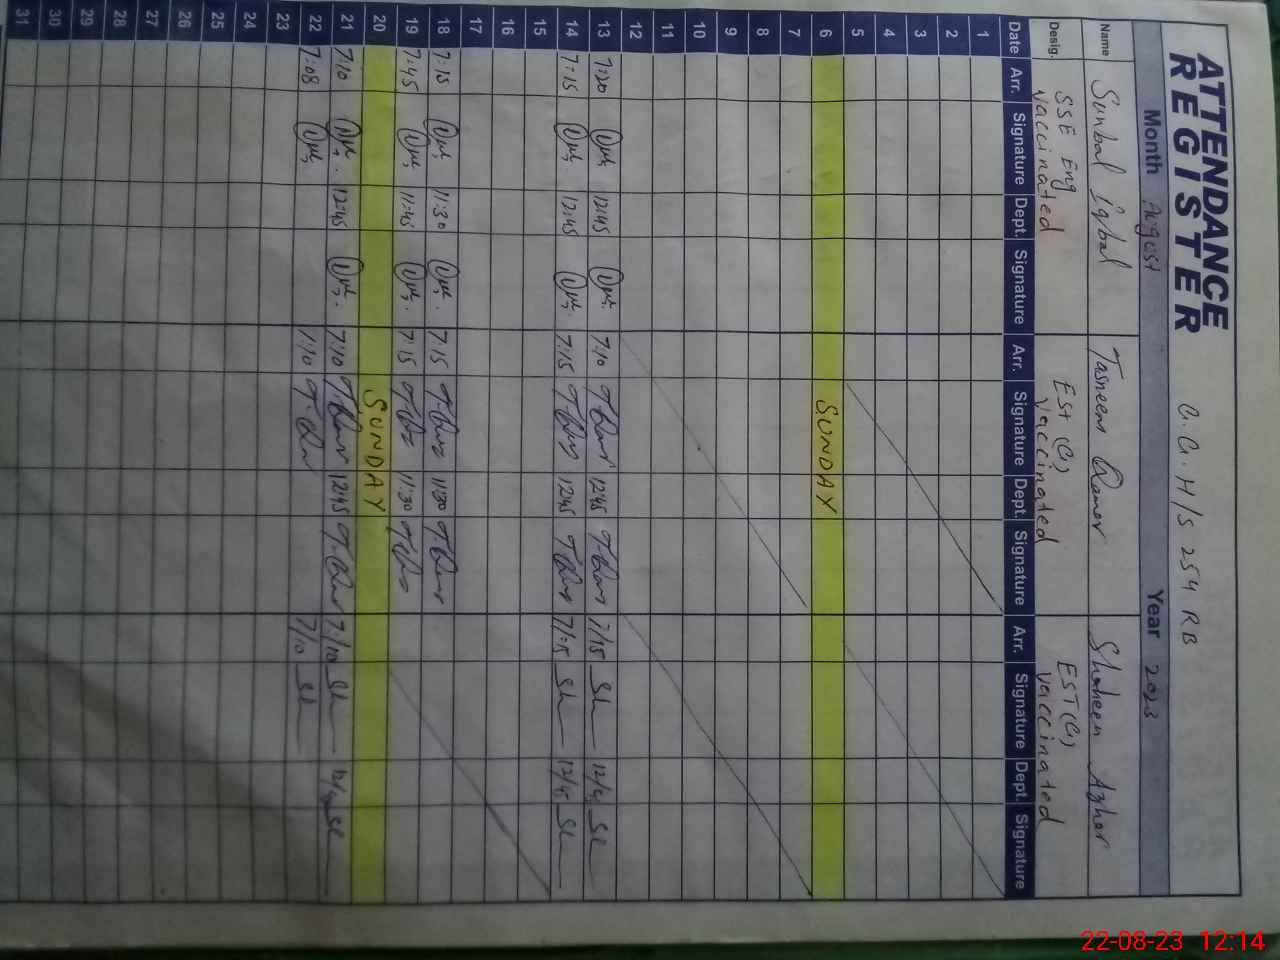 ATTENDANCE
REGISTER
G.G.H/S 254 RB
Month August Year 2023
Name Sunbal Iqbal Tasneem Qamar Shaheen Azhar
Desig. SSE Eng EST (G) EST (G)
Vaccinated Vaccinated Vaccinated
Date Arr. Signature Dept. Signature Arr. Signature Dept. Signature Arr. Signature Dept. Signature
1
2
3
4
5
6 SUNDAY
7
8
9
10
11
12
13 7:20 12:45 7:10 12:45 7/15
14 7:15 12:45 7:15 12:45 7/:15 12/45
15
16
17
18 7:15 11:30 7:15 11:30
19 7:45 11:45 7:15 11:30
20 SUNDAY
21 7:10 12:45 7:10 12:45 7:/10
22 7:08 7:10 7/10
23
24
25
26
27
28
29
30
31
22-08-23 12:14